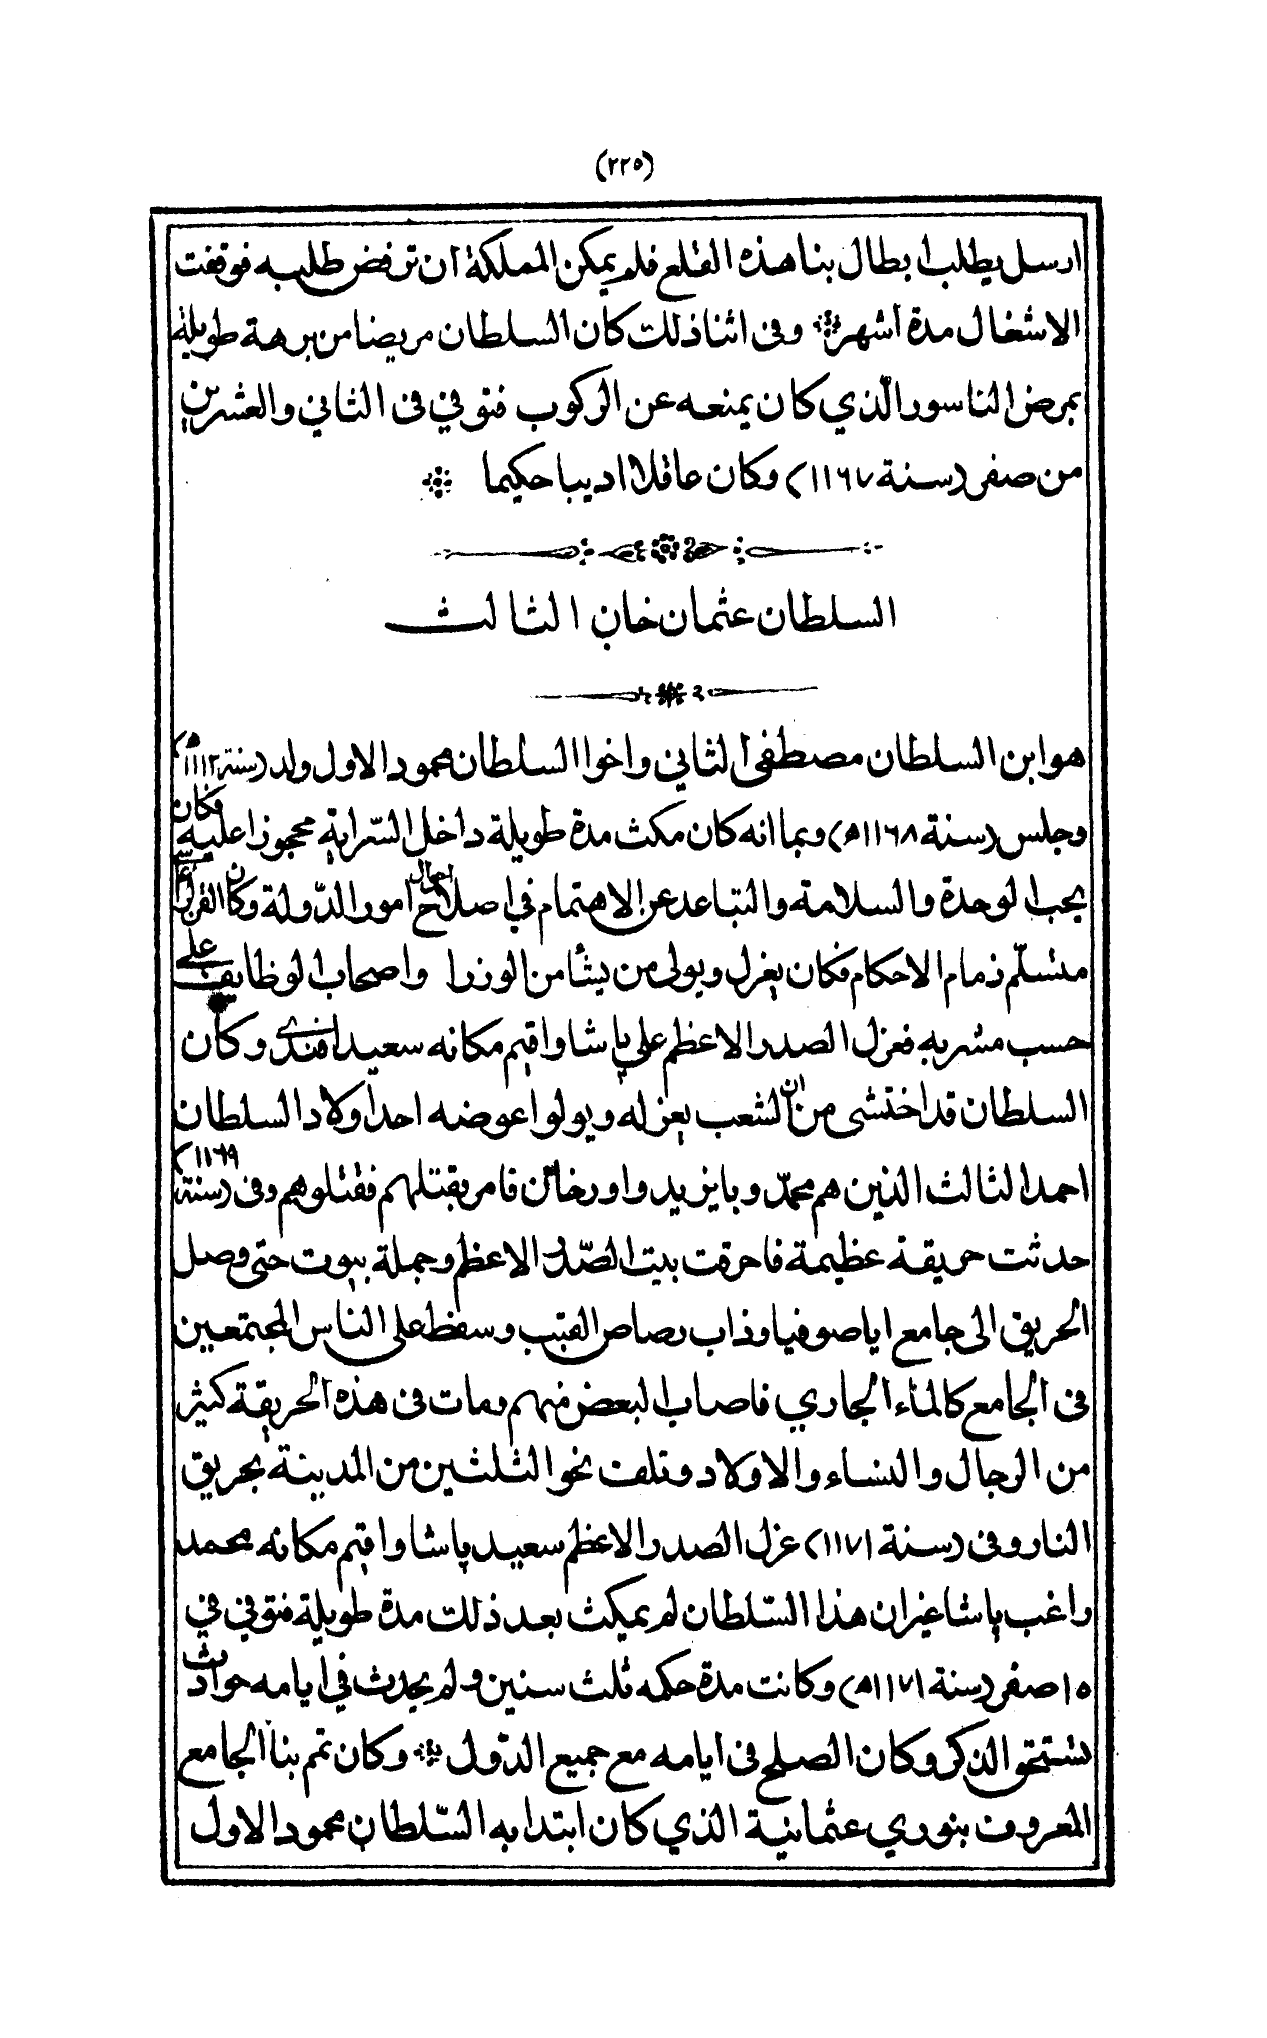 (٢٢٥)
ارسل يطلب ابطال بنا هذه القلع فلم يمكن المملكة ان ترفض طلبه فوقفت
الاشغال مدة اشهر وفى اثنا ذلك كان السلطان مريضا من برهة طويلة
بمرض الناسور الّذي كان يمنعه عن الركوب فتوفي فى الثاني والعشرين
من صفر (سنة ١١٦٧) وكان عاقلا اديبا حكيما
السلطان عثمان خان الثالث
هو ابن السلطان مصطفى الثاني واخوا السلطان محمود الاول ولد (سنة ١١١٢ه)
وجلس (سنة ١١٦٨ه) وبما انه كان مكث مدة طويلة داخل السّراية محجوزا عليه فكان
يحب الوحدة والسلامة والتباعد عن الاهتمام في اصلاح احوال امور الدّولة وكان القزلر
متسلّم زمام الاحكام فكان يعزل ويولى من يشأ من الوزرا واصحاب الوظايف على
حسب مشربه فعزل الصدر الاعظم علي پاشا واقيم مكانه سعيد افندى وكان
السلطان قد اختشى من ان الشعب يعزله ويولوا عوضه احد اولاد السلطان
احمد الثالث الذين هم محمّد وبايزيد واورخان فامر بقتلهم فقتلوهم وفى (سنة ١١٦٩)
حدثت حريقة عظيمة فاحرقت بيت الصّدر الاعظم وجملة بيوت حتى وصل
الحريق الى جامع اياصوفيا وذاب رصاص القبب وسقط على الناس المجتمعين
فى الجامع كالماء الجاري فاصاب البعض منهم ومات فى هذه الحريقة كثير
من الرجال والنساء والاولاد وتلفت نحو الثلثين من المدينة بحريق
النار وفى (سنة ١١٧١) عزل الصدر الاعظم سعيد پاشا واقيم مكانه محمد
راغب پاشا غير ان هذا السّلطان لم يمكث بعد ذلك مدة طويلة فتوفي في
١٥ صفر (سنة ١١٧١ه) وكانت مدة حكمه ثلث سنين ولم يحدث في ايامه حوادث
تستحق الذكر وكان الصلح فى ايامه مع جميع الدّول وكان تم بنا الجامع
المعروف بنوري عثمانية الذي كان ابتدا به السّلطان محمود الاول